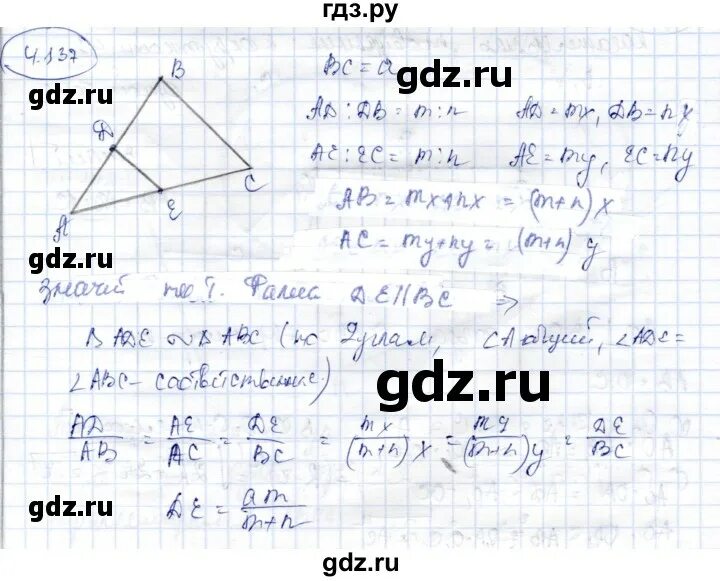 гдз.ру
4.137
B
D
C
E
A
BC = a
AD : DB = m : n AD = mx, DB = nx
AE : EC = m : n AE = my, EC = ny
AB = mx+nx = (m+n) x
AC = my+ny = (m+n) y
gdz.ru
gdz.ru
значит по т. Фалеса DE || BC ⇒
Δ ADE ∾ Δ ABC (по 2 углам, ∠A общий, ∠ADE =
∠ABC – соответственные)
gdz.ru
AD/AB = AE/AC = DE/BC = mx/(m+n)x = my/(m+n)y = DE/BC
DE = am/m+n
gdz.ru
gdz.ru